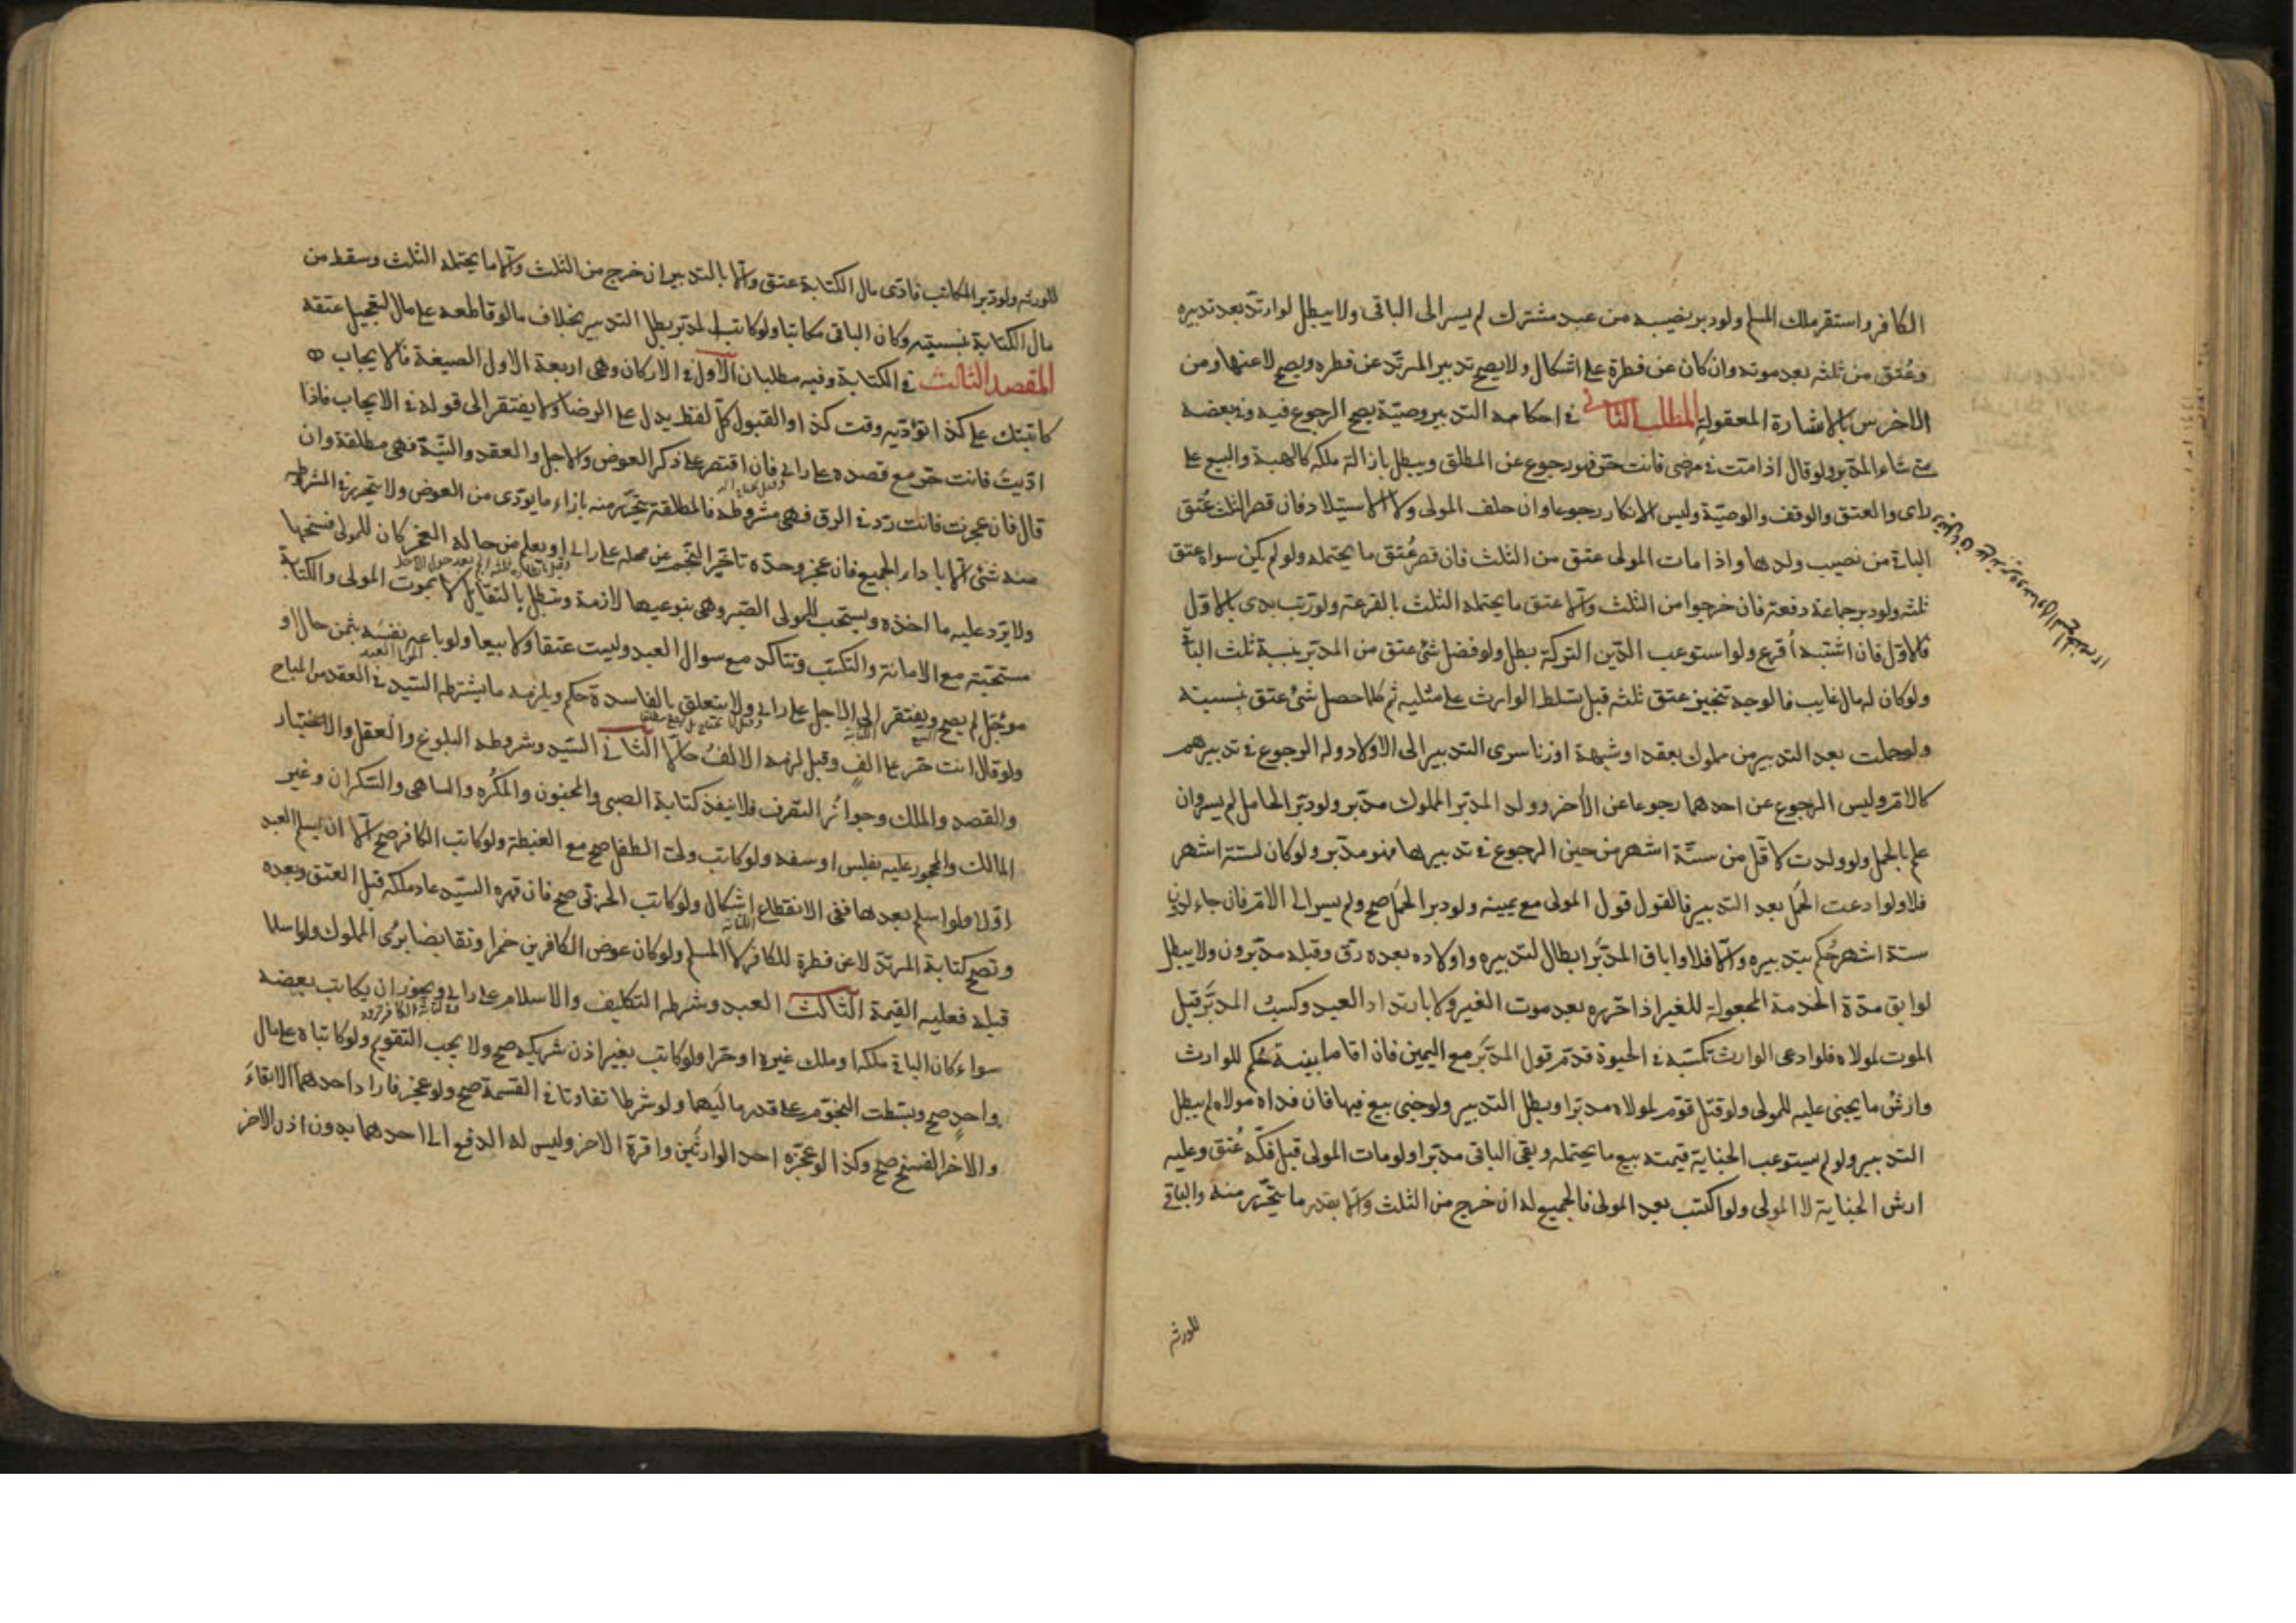 الكافر واستقر ملك المسلم ولو دبر نصيبه من عبد مشترك لم يسر الى الباقي ولا يبطل لو ارتد بعد تدبيره
وعُتق من ثلثه بعد موته وان كان عن فطرة على اشكال ولا يصح تدبير المرتد عن فطره ويصح لا عنها ومن
الاخرس بالاشارة المعقولة المطلب الثاني في احكامه التدبير وصيّة يصح الرجوع فيه وفي بعضه
متى شاء المدبر ولو قال اذا متّ في مرضي فانت حرّ فهو رجوع عن المطلق ويبطل بازالة ملكه كالهبة والبيع على
راى والعتق والوقف والوصيّة وليس الانكار رجوعا وان حلف المولى ولا الاستيلاد فان قصر الثلث عُتق
الباقي من نصيب ولدها واذا مات المولى عتق من الثلث فان قصر عُتق ما يحتمله ولو لم يكن سواه عتق
ثلثه ولو دبر جماعة دفعة فان خرجوا من الثلث والّا عتق ما يحتمله الثلث بالقرعة ولو رتب بدى بالاوّل
فالاوّل فان اشتبه اُقرع ولو استوعب الدّين التركة بطل ولو فضل شئ عتق من المدبر بنسبة ثلث الباقي
ولو كان له مال غايب فالوجه تنجيز عتق ثلثه قبل تسلط الوارث على مثليه ثم كلما حصل شئ عتق بنسبته
ولو حملت بعد التدبير من مملوك بعقد او شبهة او زنا سرى التدبير الى الاولاد وله الرجوع في تدبيرهم
كالام وليس الرجوع عن احدهما رجوعا عن الآخر وولد المدبر المملوك مدبر ولو دبر الحامل لم يسر وان
علم بالحمل ولو ولدت لاقل من ستّة اشهر من حين الرجوع في تدبيرها فهو مدبر ولو كان لستة اشهر
فلا ولو ادعت الحمل بعد التدبير فالقول قول المولى مع يمينه ولو دبر الحمل صح ولم يسر الى الام فان جاء لدون
ستة اشهر حُكم بتدبيره والّا فلا واباق المدبّر ابطال لتدبيره واولاده بعده رق وقبله مدبرون ولا يبطل
لو ابق مدة الخدمة المجعولة للغير اذا حرّره بعد موت الغير ولا بارتداد العبد وكسبُ المدبّر قبل
الموت لمولاه فلو ادعى الوارث تكسّبه في الحيوة قدم قول المدبّر مع اليمين فان اقاما بينة حُكم للوارث
وارش ما يجنى عليه للمولى ولو قتل قوم لمولاه مدبرا وبطل التدبير ولو جنى بيع فيها فان فداه مولاه لم يبطل
التدبير ولو لم يستوعب الجناية قيمته بيع ما يحتمله وبقي الباقي مدبرا ولو مات المولى قبل فكّه عُتق وعليه
ارش الجناية لا المولى ولو اكتسب بعد المولى فالجميع له ان خرج من الثلث والّا بقدر ما يتحرّر منه والباقي
للورثه
للورثه ولو دبر المكاتب فادّى مال الكتابة عتق والّا بالتدبير ان خرج من الثلث والّا ما يحتمله الثلث وسقط من
مال الكتابة بنسبته وكان الباقي مكاتبا ولو كاتب المدبر بطل التدبير بخلاف ما لو قاطعه على مال لتعجيل عتقه
المقصد الثالث في الكتابة وفيه مطلبان الاول في الاركان وهي اربعة الاول الصيغة فالايجاب
كاتبتك على كذا تؤديه وقت كذا والقبول كلّ لفظ يدل على الرضا ولا يفتقر الى قوله في الايجاب فاذا
ادّيتَ فانت حرّ مع قصده على راي فان اقتصر على ذكر العوض والاجل والعقد والنيّة فهي مطلقة وان
قال فان عجزت فانت ردّ في الرق فهي مشروطة فالمطلقة يتحرّر منه بازاء ما يودى من العوض ولا يتحرر في المشروطه
منه شئ الّا باداء الجميع فان عجز وحدّه تاخير النجم عن محله على راي او يعلم من حاله العجز كان للمولى فسخها
ولا يردّ عليه ما اخذه ويستحب للمولى الصبر وهي بنوعيها لازمة وتبطل بالتقايل لا بموت المولى والكتابة
مستحبّة مع الامانة والتكسّب وتتاكد مع سوال العبد وليست عتقا ولا بيعا ولو باعه نفسه بثمن حال او
موجّل لم يصح ويفتقر الى الاجل على راي ولا يتعلق بالفاسدة حكم ويلزمه ما يشترطه السّيد في العقد من المباح
ولو قال انت حرّ على الفٍ وقبل لزمه الالفُ حالّا الثاني السّيد وشروطه البلوغ والعقل والاختيار
والقصد والملك وجوازُ التصرف فلا ينفذ كتابة الصبي والمجنون والمكُره والساهي والسكران وغير
المالك والمحجور عليه بفلس او سفه ولو كاتب ولى الطفل صح مع الغبطة ولو كاتب الكافر صح الّا ان يسلم العبد
اوّلا ولو اسلم بعدها ففي الانقطاع اشكال ولو كاتب الحربي صح فان قهره السّيد عاد ملكه قبل العتق وبعده
وتصح كتابة المرتدّ لا عن فطرة للكافر لا المسلم ولو كان عوض الكافرين خمرا وتقابضا برئ المملوك ولو اسلما
قبله فعليه القيمة الثالث العبد وشرطه التكليف والاسلام على راي ويجوز ان يكاتب بعضه
سواء كان الباقي ملكه او ملك غيره او حرّا ولو كاتب بغير اذن شريكه صح ولا يجب التقويم ولو كاتباه على مال
واحدٍ صح وبسّطت النجوم على قدر ماليهما ولو شرطا تفاوتا في القسمة صح ولو عجز فاراد احدهما الابقاءَ
والاخر الفسخ صح وكذا لو عجّزه احد الوارثَين واقرّه الاخر وليس له الدفع الى احدهما بدون اذن الاخر